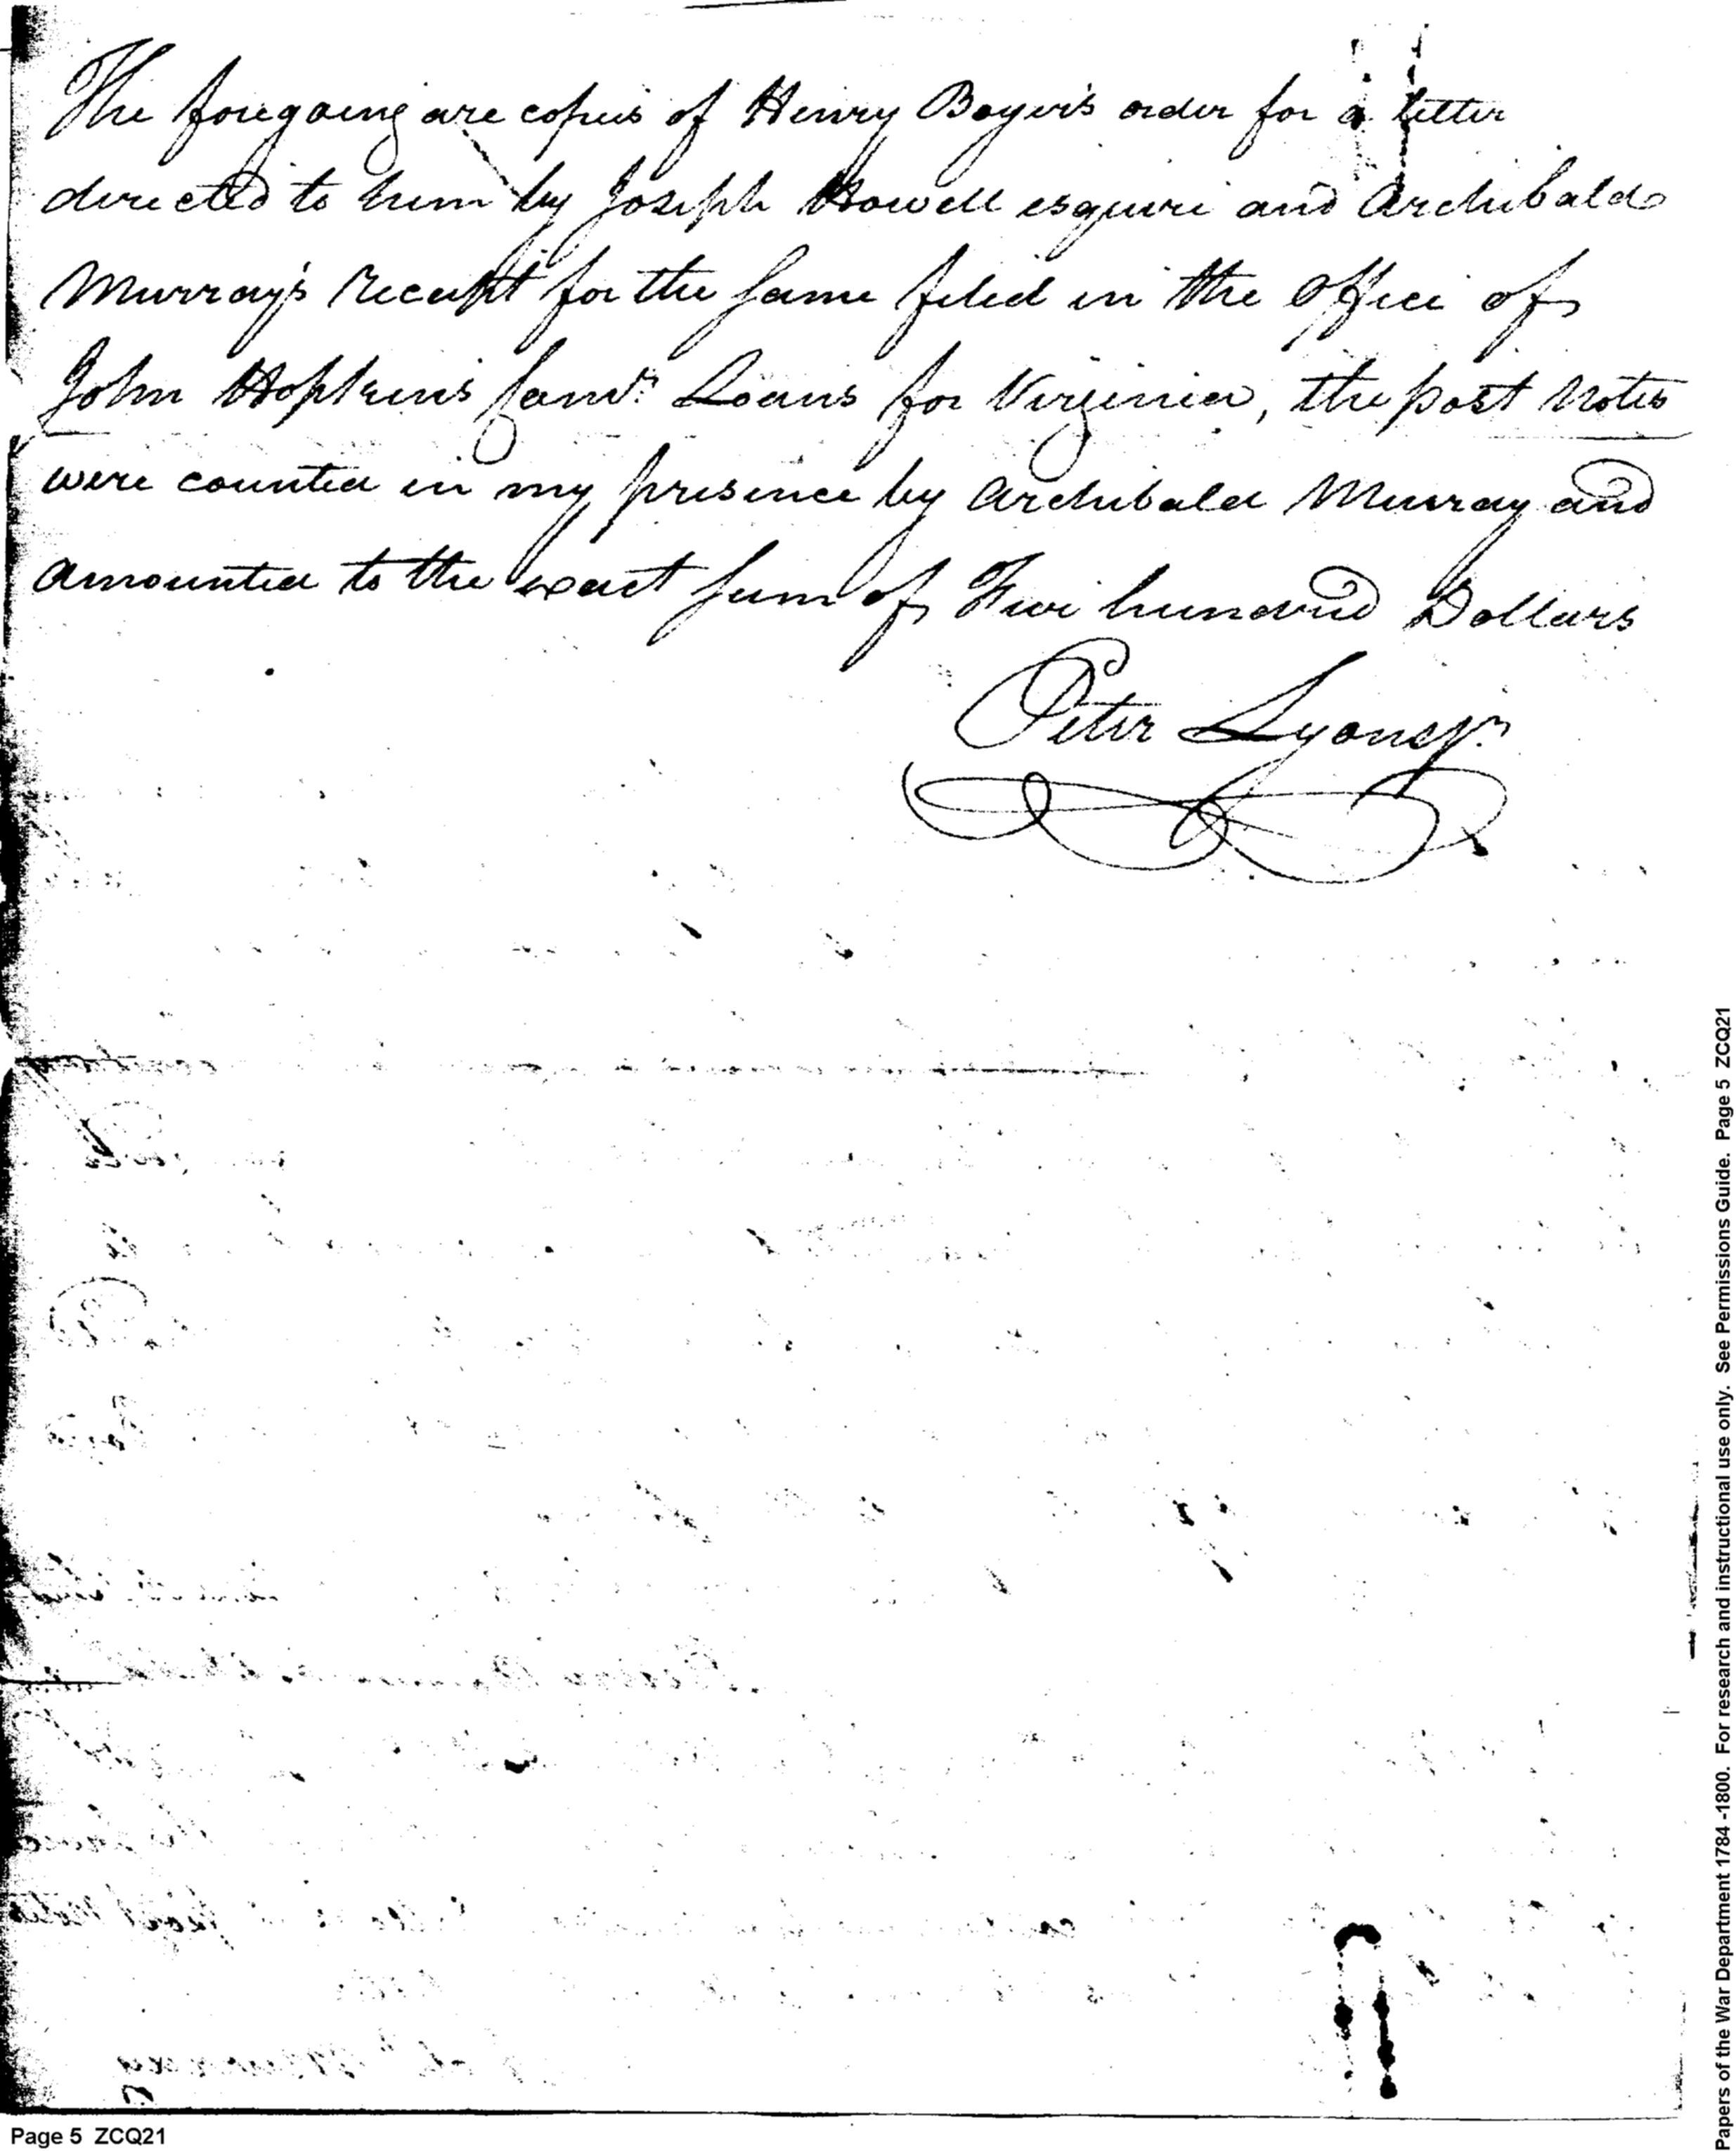 The foregoing are copies of Henry Boyer's order for a letter
directed to him by Joseph Howell esquire and Archibald
Murray's receipt for the same filed in the office of
John Hopkins Comr. Loans for Virginia, the post notes
were counted in my presence by Archibald Murray and
amounted to the exact sum of Five hundred Dollars
Peter Lyons Jr.
Page 5 ZCQ21
Papers of the War Department 1784 -1800. For research and instructional use only. See Permissions Guide. Page 5 ZCQ21